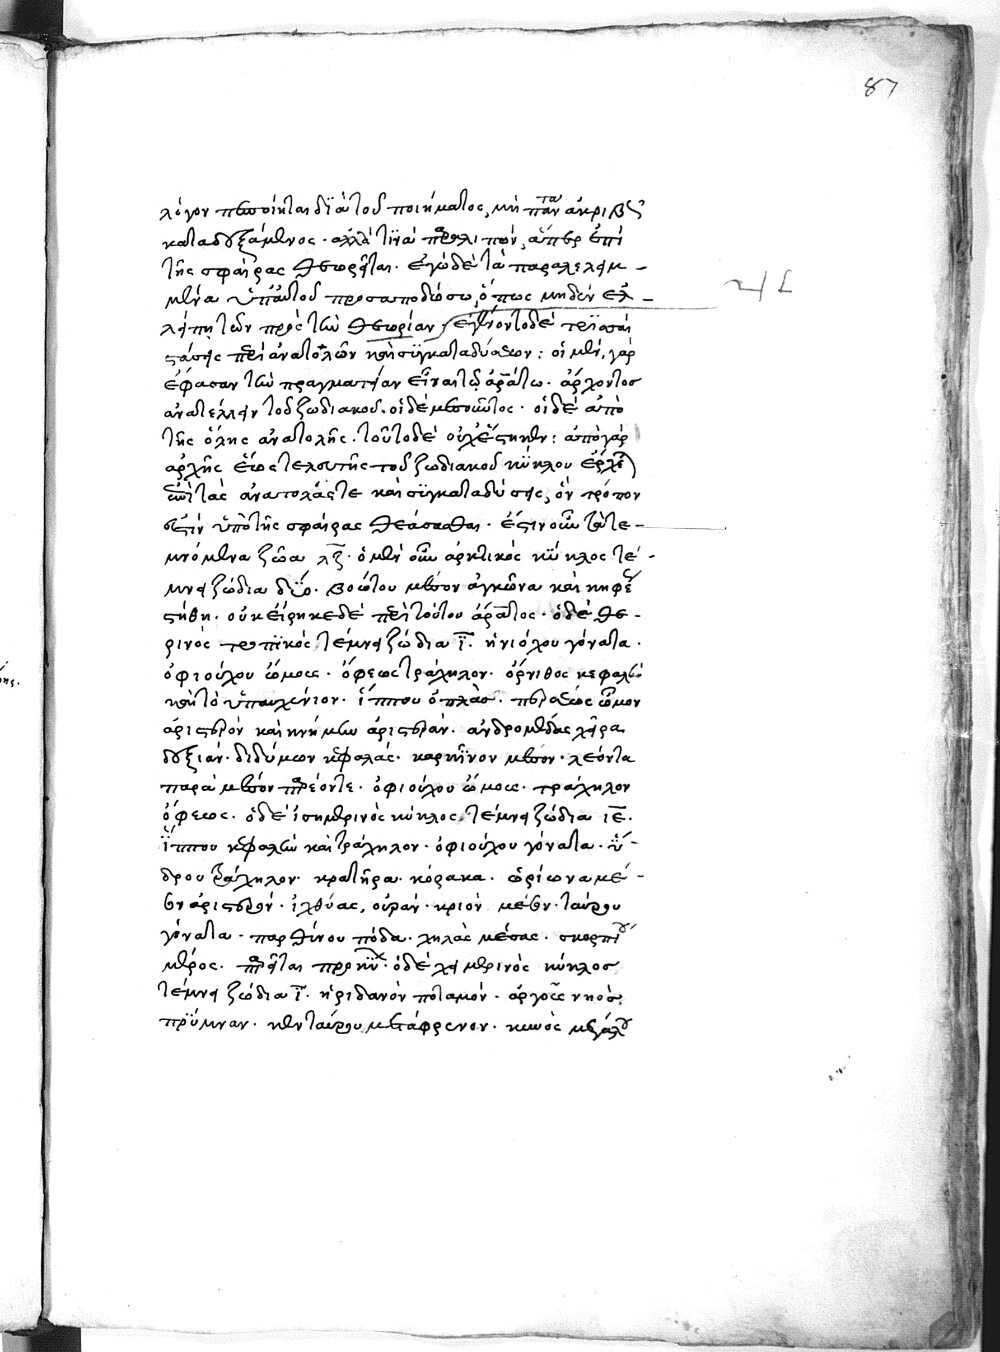 87
λόγον πεποίηται διὰ τοῦ ποιήματος, μὴ πάντα ἀκριβῶς
καταδυξάμενος· ἀλλά τινα παραλιπών, ἅπερ ἐπὶ
τῆς σφαίρας θεωρεῖται. ἐγὼ δὲ τὰ παραλελειμ-
μένα ὑπ' αὐτοῦ προσαποδώσω, ὅπως μηδὲν ἐλ-
λείπῃ τῶν πρὸς τὴν θεωρίαν ἐγένοντο δὲ τρισσαὶ
στάσεις περὶ ἀνατολῶν καὶ συγκαταδύσεων: οἱ μὲν γὰρ
ἔφασαν τὴν πραγματείαν εἶναι τῷ ἀράτῳ. ἄρχοντος
ἀνατέλλειν τοῦ ζωδιακοῦ. οἱ δὲ μεσοῦντος· οἱ δὲ ἀπὸ
τῆς ὅλης ἀνατολῆς. τοῦτο δὲ οὐχ ἕστηκεν: ἀπὸ γὰρ
ἀρχῆς ἕως τελευτῆς τοῦ ζωδιακοῦ κύκλου ἔρχεται
ἐπὶ τὰς ἀνατολάς τε καὶ συγκαταδύσεις, ὃν τρόπον
ἐστὶν ὑπὸ τῆς σφαίρας θεάσασθαι. ἔστιν οὖν τὰ τε-
μνόμενα ζῶα λζ· ὁ μὲν οὖν ἀρκτικὸς κύκλος τέ-
μνει ζώδια δύο. βοώτου μέσον ἀγκῶνα καὶ κηφέως
στήθη. οὐκ εἴρηκε δὲ περὶ τούτου ἄρατος· ὁ δὲ θε-
ρινὸς τροπικὸς τέμνει ζώδια ι. ἡνιόχου γόνατα.
ὀφιούχου ὤμους. ὄφεως τράχηλον. ὄρνιθος κεφαλὴν
καὶ τὸ ὑπαυχένιον. ἵππου ὁπλάς. περσέως ὦμον
ἀριστερὸν καὶ κνήμην ἀριστεράν. ἀνδρομέδας χεῖρα
δυξιάν· διδύμων κεφαλάς. καρκῖνον μέσον. λέοντα
παρὰ μέσον παρέοντε. ὀφιούχου ὤμους. τράχηλον
ὄφεως. ὁ δὲ ἰσημερινὸς κύκλος, τέμνει ζώδια ιε.
ἵππου κεφαλὴν καὶ τράχηλον. ὀφιούχου γόνατα. ὕ-
δρου τράχηλον. κρατῆρα. κόρακα. ὠρίωνα μέ-
σον ἀριστερόν. ἰχθύας, οὐράν. κριὸν μέσον. ταύρου
γόνατα. παρθένου πόδα. χηλὰς μέσας. σκορπίου
μέρος. παρεῖται προκύν. ὁ δὲ χειμερινὸς κύκλος
τέμνει ζώδια ι. ἠριδανὸν ποταμόν. ἀργοῦς νηὸς
πρύμναν. κενταύρου μετάφρενον. κυνὸς μεγάλου